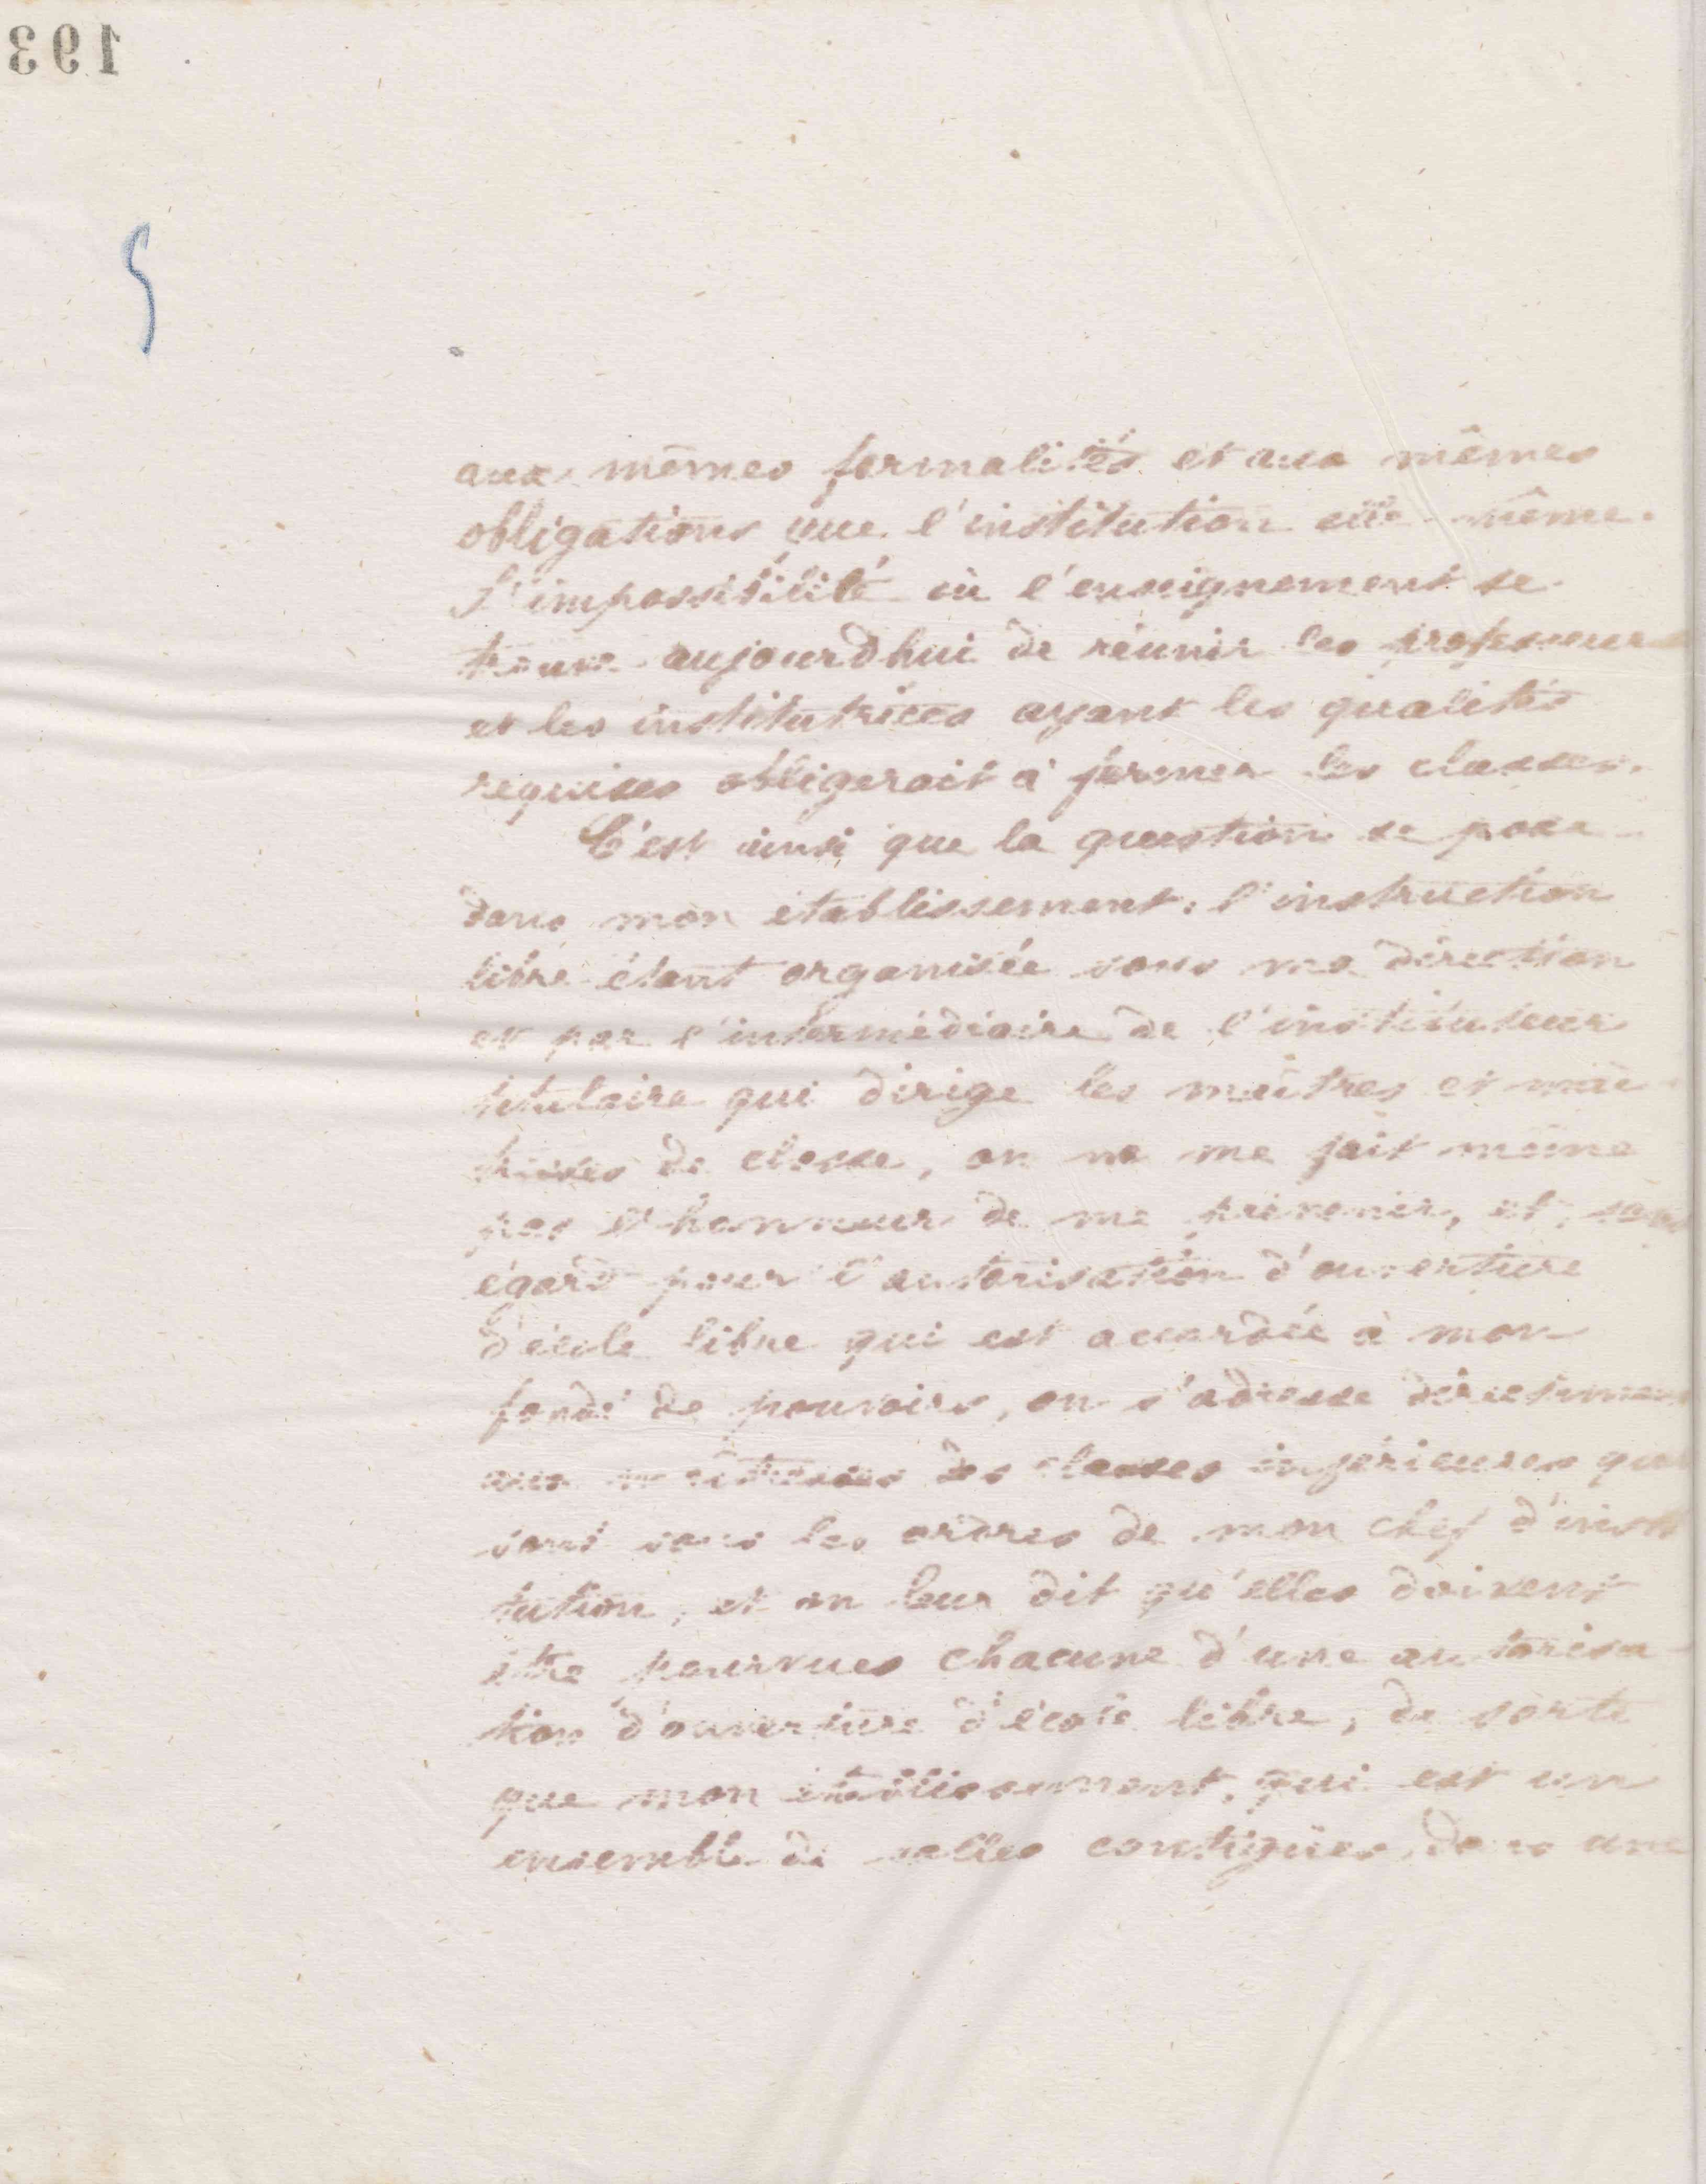 193
aux mêmes formalités et aux mêmes
obligations que l'institution elle-même.
L'impossibilité où l'enseignement se
trouve aujourd'hui de réunir les professeurs
et les institutrices ayant les qualités
requises obligerait à fermer les classes.
C'est ainsi que la question se pose
dans mon établissement: l'instruction
libre étant organisée sous ma direction
et par l'intermédiaire de l'instituteur
titulaire qui dirige les maîtres et maî-
tresses de classe, on ne me fait même
pas l'honneur de me prévenir, et, sans
égard pour l'autorisation d'ouverture
d'école libre qui est accordée à mon
fondé de pouvoirs, on s'adresse directement
aux maîtresses des classes inférieures qui
sont sous les ordres de mon chef d'insti
tution, et on leur dit qu'elles doivent
être pourvues chacune d'une autorisa-
tion d'ouverture d'école libre, de sorte
que mon établissement, qui est un
ensemble de salles contiguës, dans une